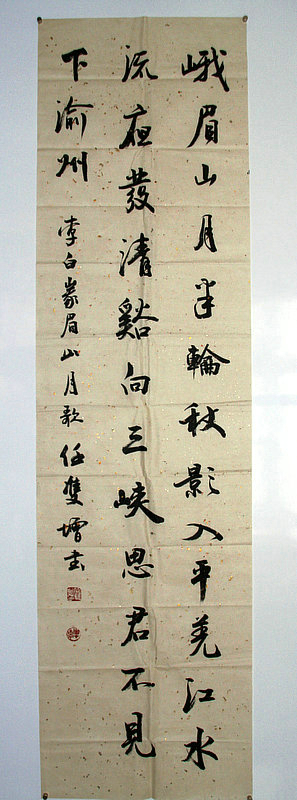 峨眉山月半輪秋影入平羌江水
流夜發清谿向三峽思君不見
下渝州
李白峩眉山月歌任雙增書